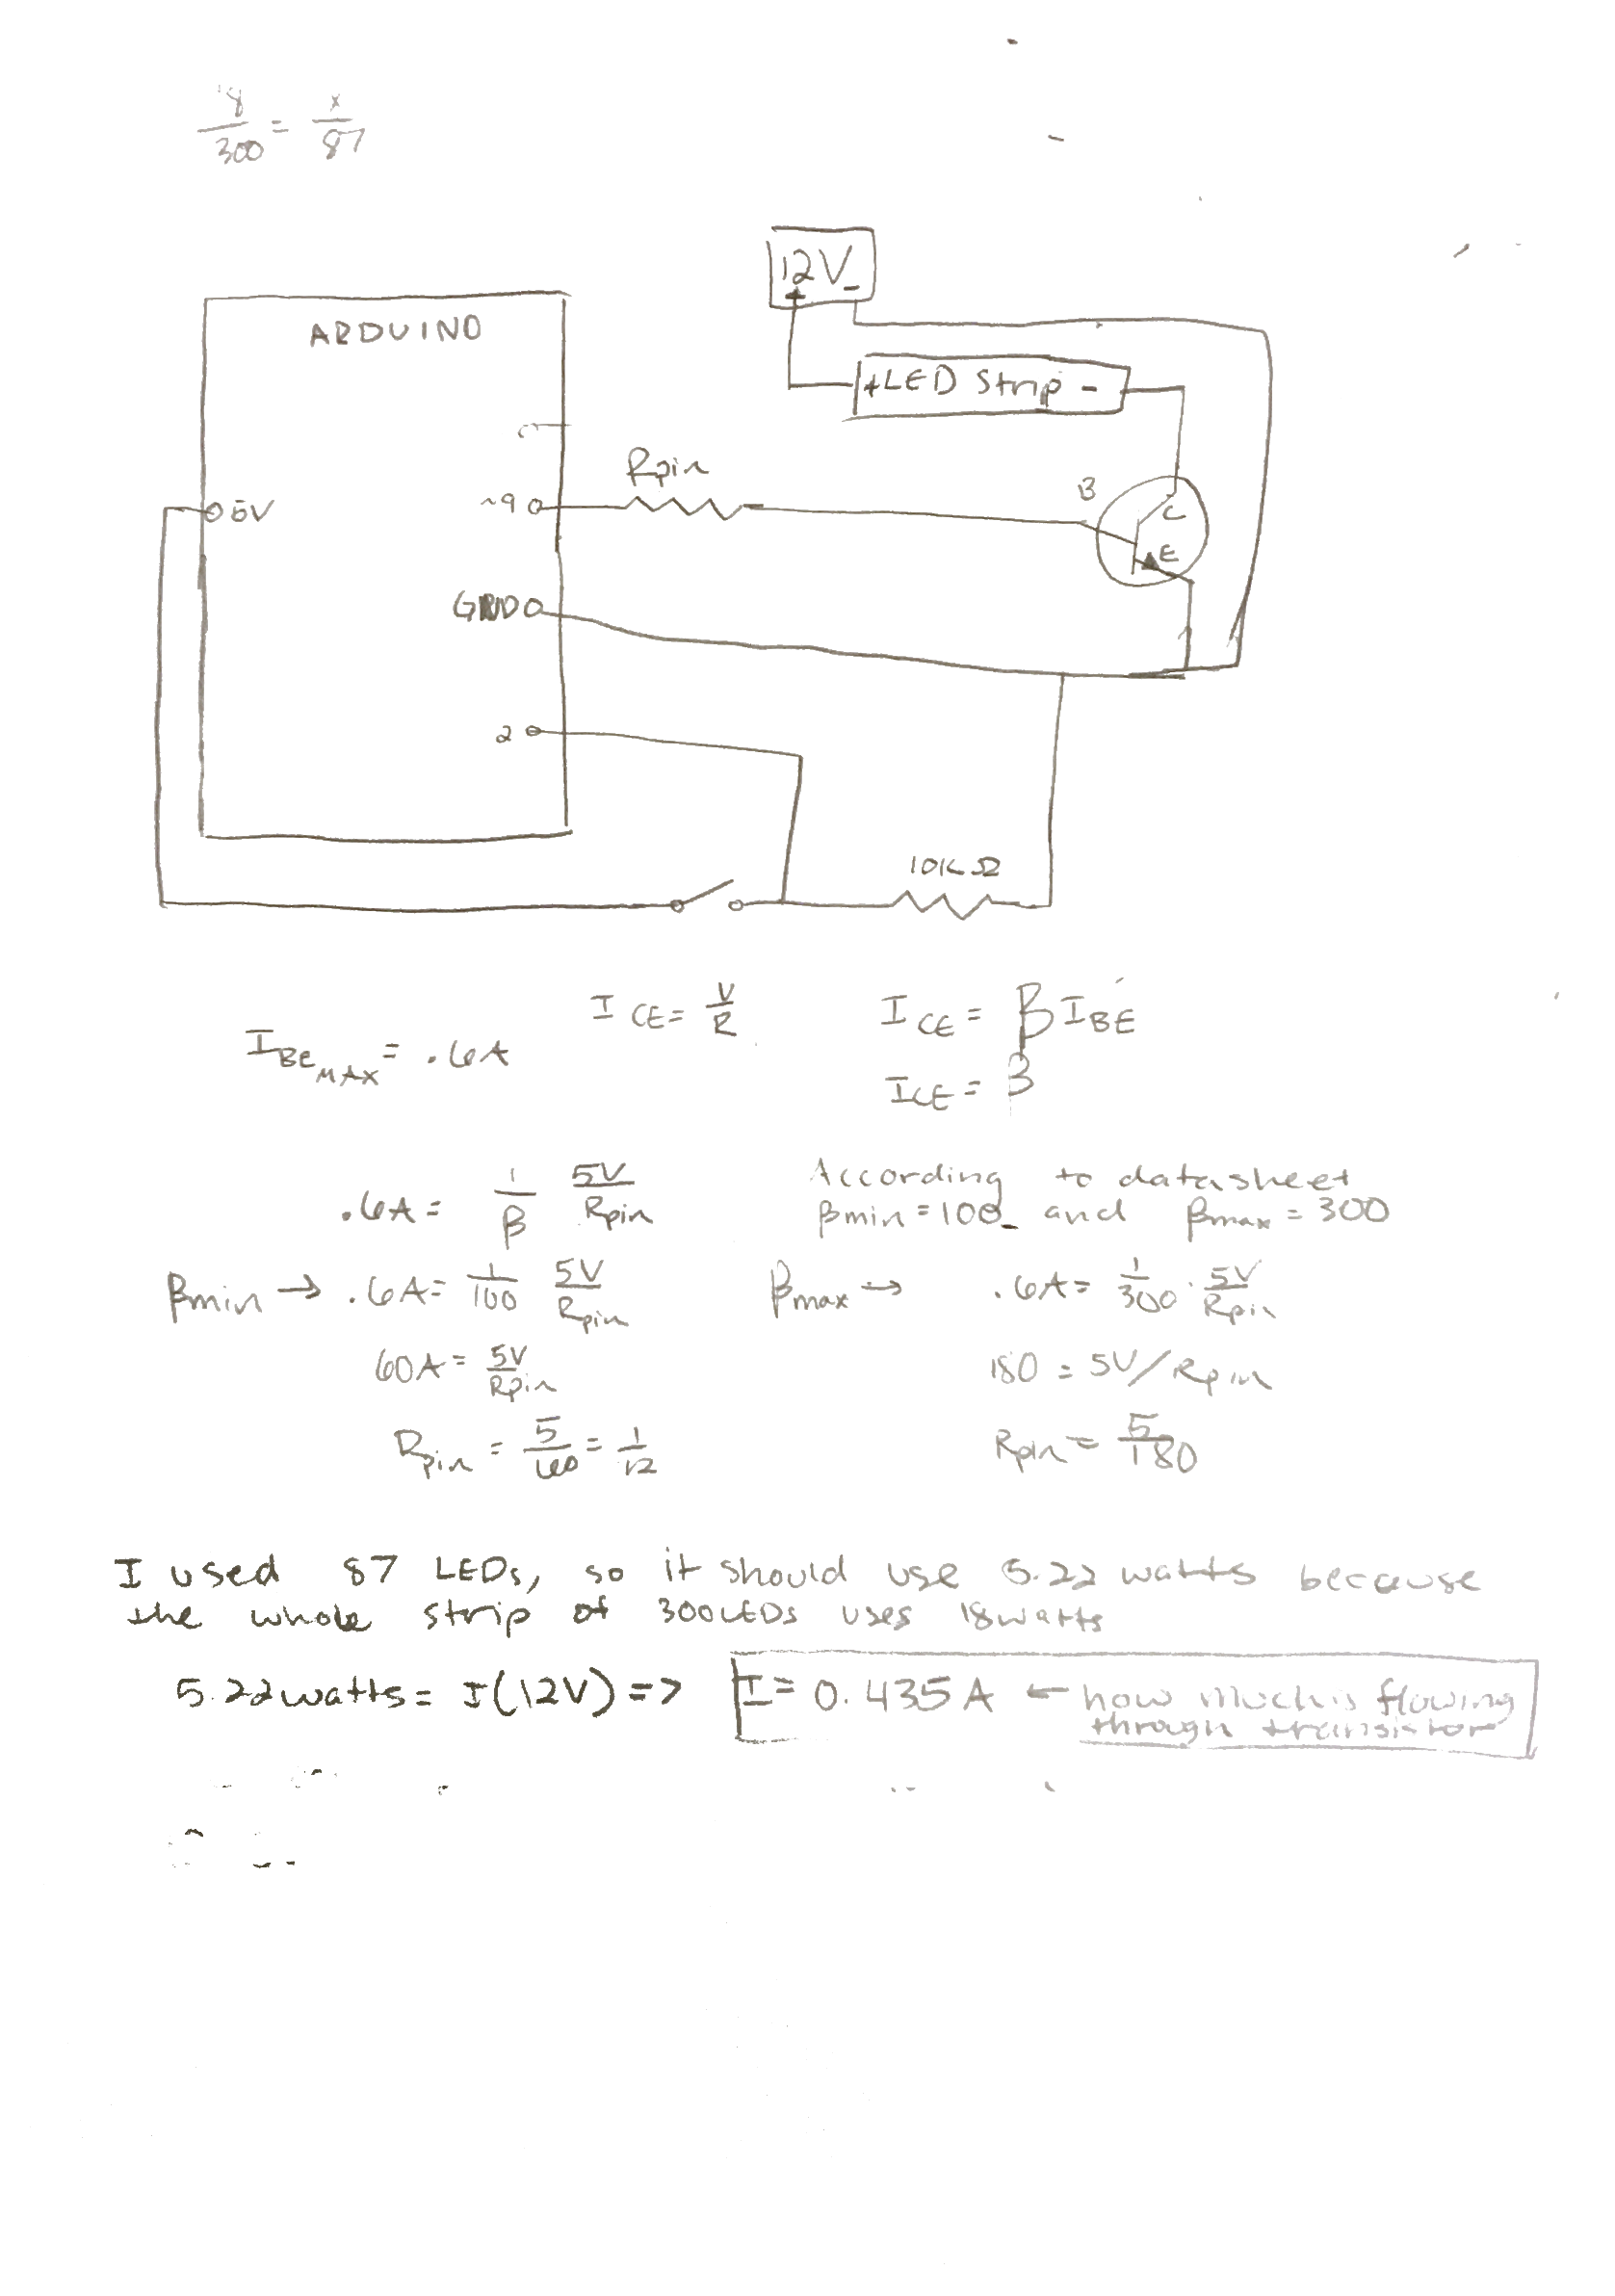 18/300 = x/87
12V
+ -
ARDUINO
+LED Strip -
Rpin
B
C
E
5V
~9
GRND
2
10KΩ
I CE = V/R
I CE = β I BE
I BE MAX = .6A
I CE = β
.6A = 1/β 5V/Rpin
According to datasheet
βmin = 100 and βmax = 300
βmin → .6A = 1/100 5V/Rpin
βmax → .6A = 1/300 · 5V/Rpin
60A = 5V/Rpin
180 = 5V/Rpin
Rpin = 5/60 = 1/12
Rpin = 5/180
I used 87 LEDs, so it should use 5.22 watts because
the whole strip of 300 LEDs uses 18 watts
5.22 watts = I(12V) => I = 0.435A ← how much is flowing
through transistor